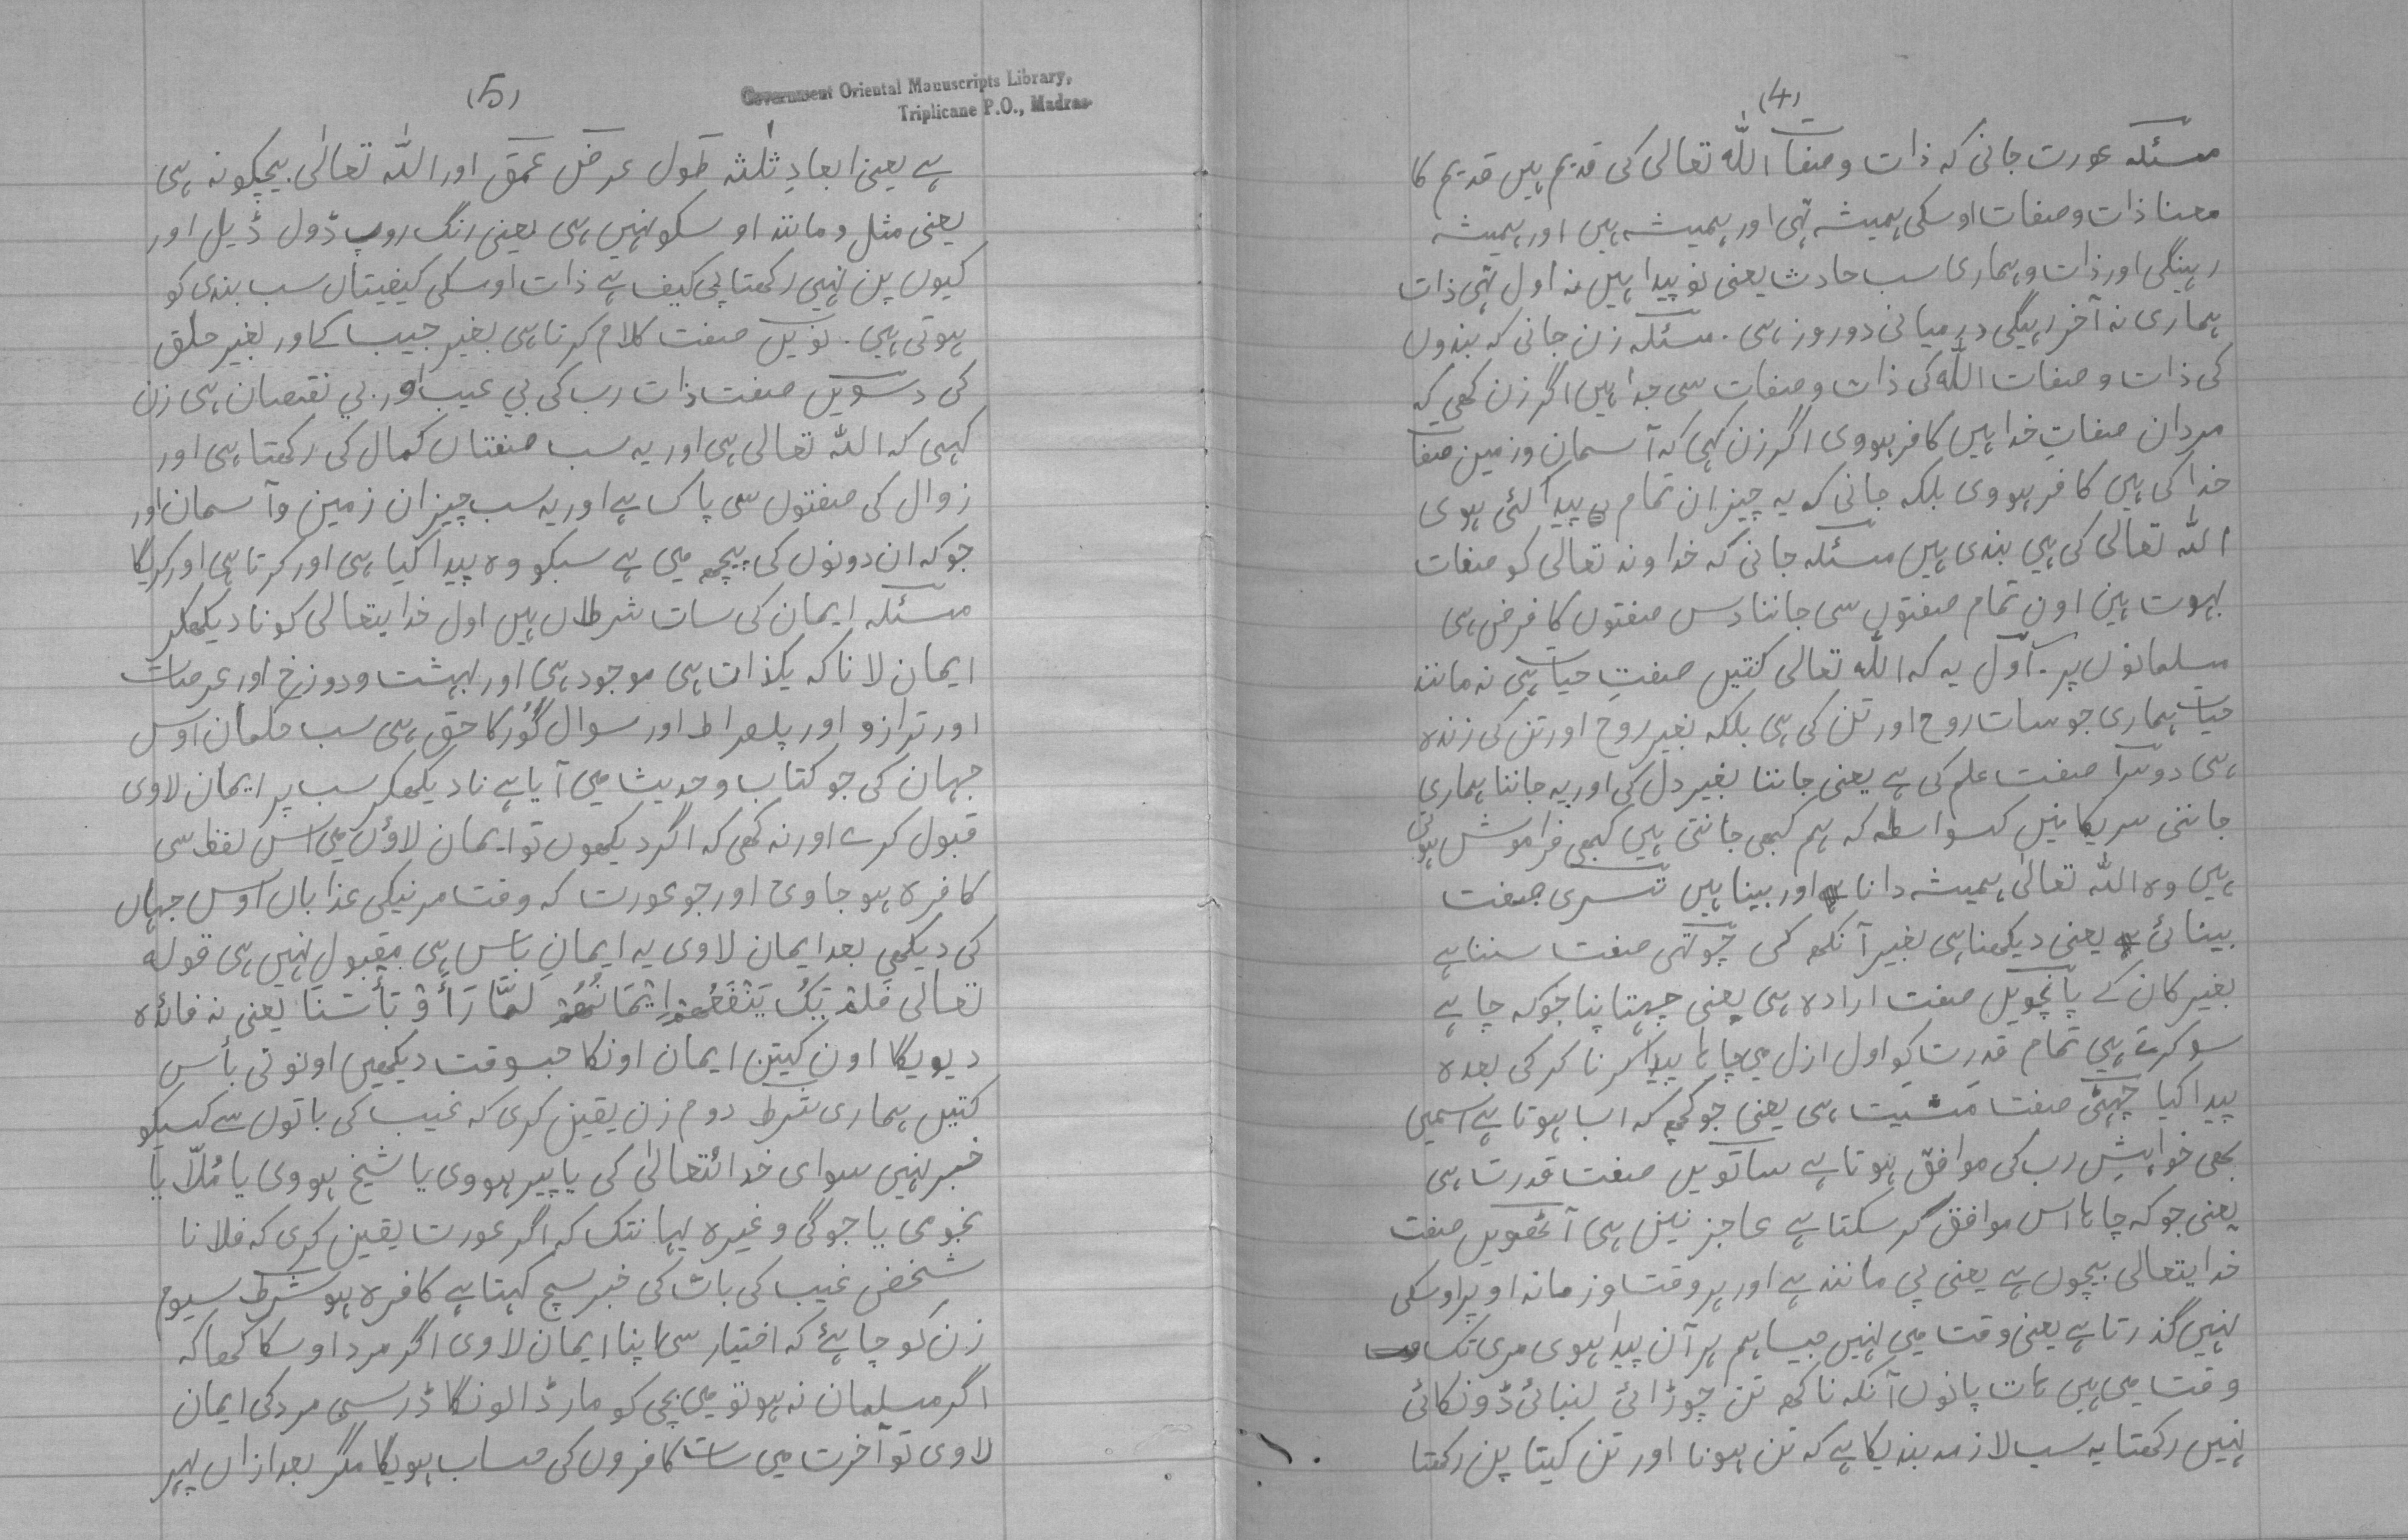 (4)
مسئلہ عورت جانی کہ ذات و صفات اللہ تعالی کی قدیم ہیں قدیم کا
معنا ذات و صفات اوسکی ہمیشہ تہی اور ہمیشہ ہیں اور ہمیشہ
رہینگی اور ذات و ہماری سب حادث یعنی نو پیدا ہیں نہ اول تہی ذات
ہماری نہ آخر رہیگی درمیانی دو روز ہی ۔ مسئلہ زن جانی کہ بندوں
کی ذات و صفات اللہ کی ذات و صفات سی جدا ہیں اگر زن کہی کہ
مردان صفاتِ خدا ہیں کافر ہووی اگر زن کہی کہ آسمان و زمین صفات
خدا کی ہیں کافر ہووی بلکہ جانی کہ یہ چیزان تمام پیدا کئی ہوی
اللہ تعالی کی ہیں بندی ہیں مسئلہ جانی کہ خداوند تعالی کو صفات
بہوت ہین اون تمام صفتوں سی جاننا دس صفتوں کا فرض ہی
مسلمانوں پر ۔ اول یہ کہ اللہ تعالی کتیں صفتِ حیات ہی نہ مانند
حیات ہماری جو سات روح اور تن کی ہی بلکہ بغیر روح اور تن کی زندہ
ہی دوسرا صفت علم کی ہے یعنی جاننا بغیر دل کی اور یہ جاننا ہماری
جاننی سریکا نیں کسواسطہ کہ ہم کبھی جانتی ہیں کبھی فراموش ہوتی
ہیں وہ اللہ تعالیٰ ہمیشہ دانا ہے اور بینا ہیں تسری صفت
بینائی ہے یعنی دیکھنا ہی بغیر آنکھ کی چوتہی صفت سننا ہے
بغیر کان کے پانچویں صفت ارادہ ہی یعنی چہتاپنا جو کہ چاہے
سو کرتے ہیں تمام قدرت کو اول ازل میں چاہا پیدا کرنا کر کی بعدہ
پیدا کیا چہٹی صفت مشیت ہی یعنی جو کچھ کہ اسا ہوتا ہے اسمیں
بھی خواہشِ رب کی موافق ہوتا ہے ساتویں صفت قدرت ہی
یعنی جو کہ چاہا اس موافق کر سکتا ہے عاجز نیں ہی آٹھویں صفت
خدایتعالی بیچوں ہے یعنی بی مانند ہے اور ہر وقت و زمانہ اوپر اوسکی
نہیں گذرتا ہے یعنی وقت میں نہیں جیسا ہم ہر آن پیدا ہوی مری تک
وقت میں ہیں ہات پانوں آنکہ ناکھ تن چوڑائی لنبائی ڈونکائی
نہیں رکھتا یہ سب لازمہ بندیکا ہے کہ تن ہونا اور تن کیتا پن رکھتا
(5)
Government Oriental Manuscripts Library,
Triplicane P.O., Madras
ہے یعنی ابعادِ ثلٰثہ طول عرض عمق اور اللہ تعالیٰ بیچگونہ ہی
یعنی مثل و مانند اوسکو نہیں ہی یعنی رنگ روپ ڈول ڈیل اور
کیوں پن نہیں رکھتا بی کیف ہے ذات اوسکی کیفیتاں سب بندی کو
ہوتی ہیں ۔ نویں صفت کلام کرتا ہی بغیر جیب کے اور بغیر حلق
کی دسویں صفت ذات رب کی بی عیب اور بی نقصان ہی زن
کہی کہ اللہ تعالی ہی اور یہ سب صفتاں کمال کی رکھتا ہی اور
زوال کی صفتوں سی پاک ہے اور یہ سب چیزان زمین و آسمان اور
جو کہ ان دونوں کی بیچھ میں ہے سبکو وہ پیدا کیا ہی اور کرتا ہی اور کریگا
مسئلہ ایمان کی سات شرطاں ہیں اول خدایتعالی کو نا دیکھکر
ایمان لانا کہ یکذات ہی موجود ہی اور بہشت و دوزخ اور عرصات
اور ترازو اور پلصراط اور سوال گُور کا حق ہی سب حکمان اوس
جہان کی جو کتاب و حدیث میں آیا ہے نا دیکھکر سب پر ایمان لاوی
قبول کرے اور نہ کہی کہ اگر دیکھوں تو ایمان لاؤں میں اس لفظ سی
کافرہ ہو جاوی اور جو عورت کہ وقت مرنیکی عذاباں اوس جہاں
کی دیکھی بعد ایمان لاوی یہ ایمانِ باس ہی مقبول نہیں ہی قولہ
تعالی فَلَمْ یَکُ یَنْفَعُهُمْ اِیْمَانُهُمْ لَمَّا رَأَوْ بَأْسَنَا یعنی نہ فائدہ
دیویگا اون کیتں ایمان اونکا جسوقت دیکھیں اونو نی بأس
کتیں ہماری شرط دوم زن یقین کری کہ غیب کی باتوں سے کسیکو
خبر نہیں سوای خدائتعالیٰ کی یا پیر ہووی یا شیخ ہووی یا مُلّا یا
نجومی یا جوگی وغیرہ یہانتک کہ اگر عورت یقین کری کہ فلانا
شخص غیب کی بات کی خبر سچ کہتا ہے کافرہ ہو شرط سیوم
زن کو چاہئے کہ اختیار سی اپنا ایمان لاوی اگر مرد اوسکا کھا کہ
اگر مسلمان نہ ہو تو میں بچی کو مار ڈالونگا ڈر سی مرد کی ایمان
لاوی تو آخرت میں سات کافروں کی حساب ہویگا مگر بعد ازاں پہر